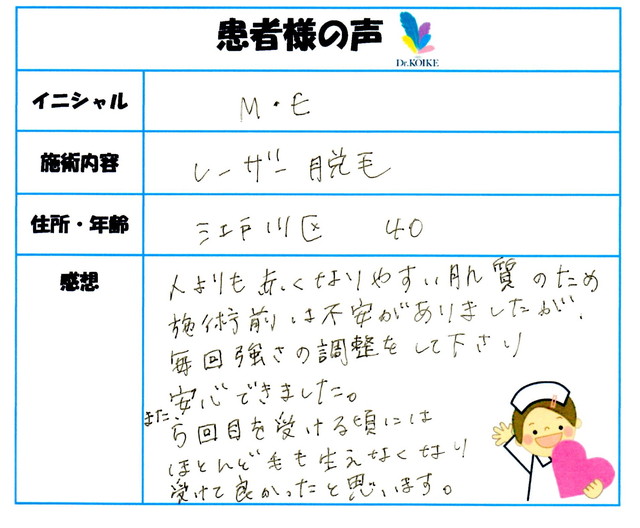 患者様の声
Dr.KOIKE
イニシャル M・E
施術内容 レーザー脱毛
住所・年齢 江戸川区 40
感想
人よりも赤くなりやすい肌質のため
施術前は不安がありましたが、
毎回強さの調整をして下さり
安心できました。
また、5回目を受ける頃には
ほとんど毛も生えなくなり
受けて良かったと思います。